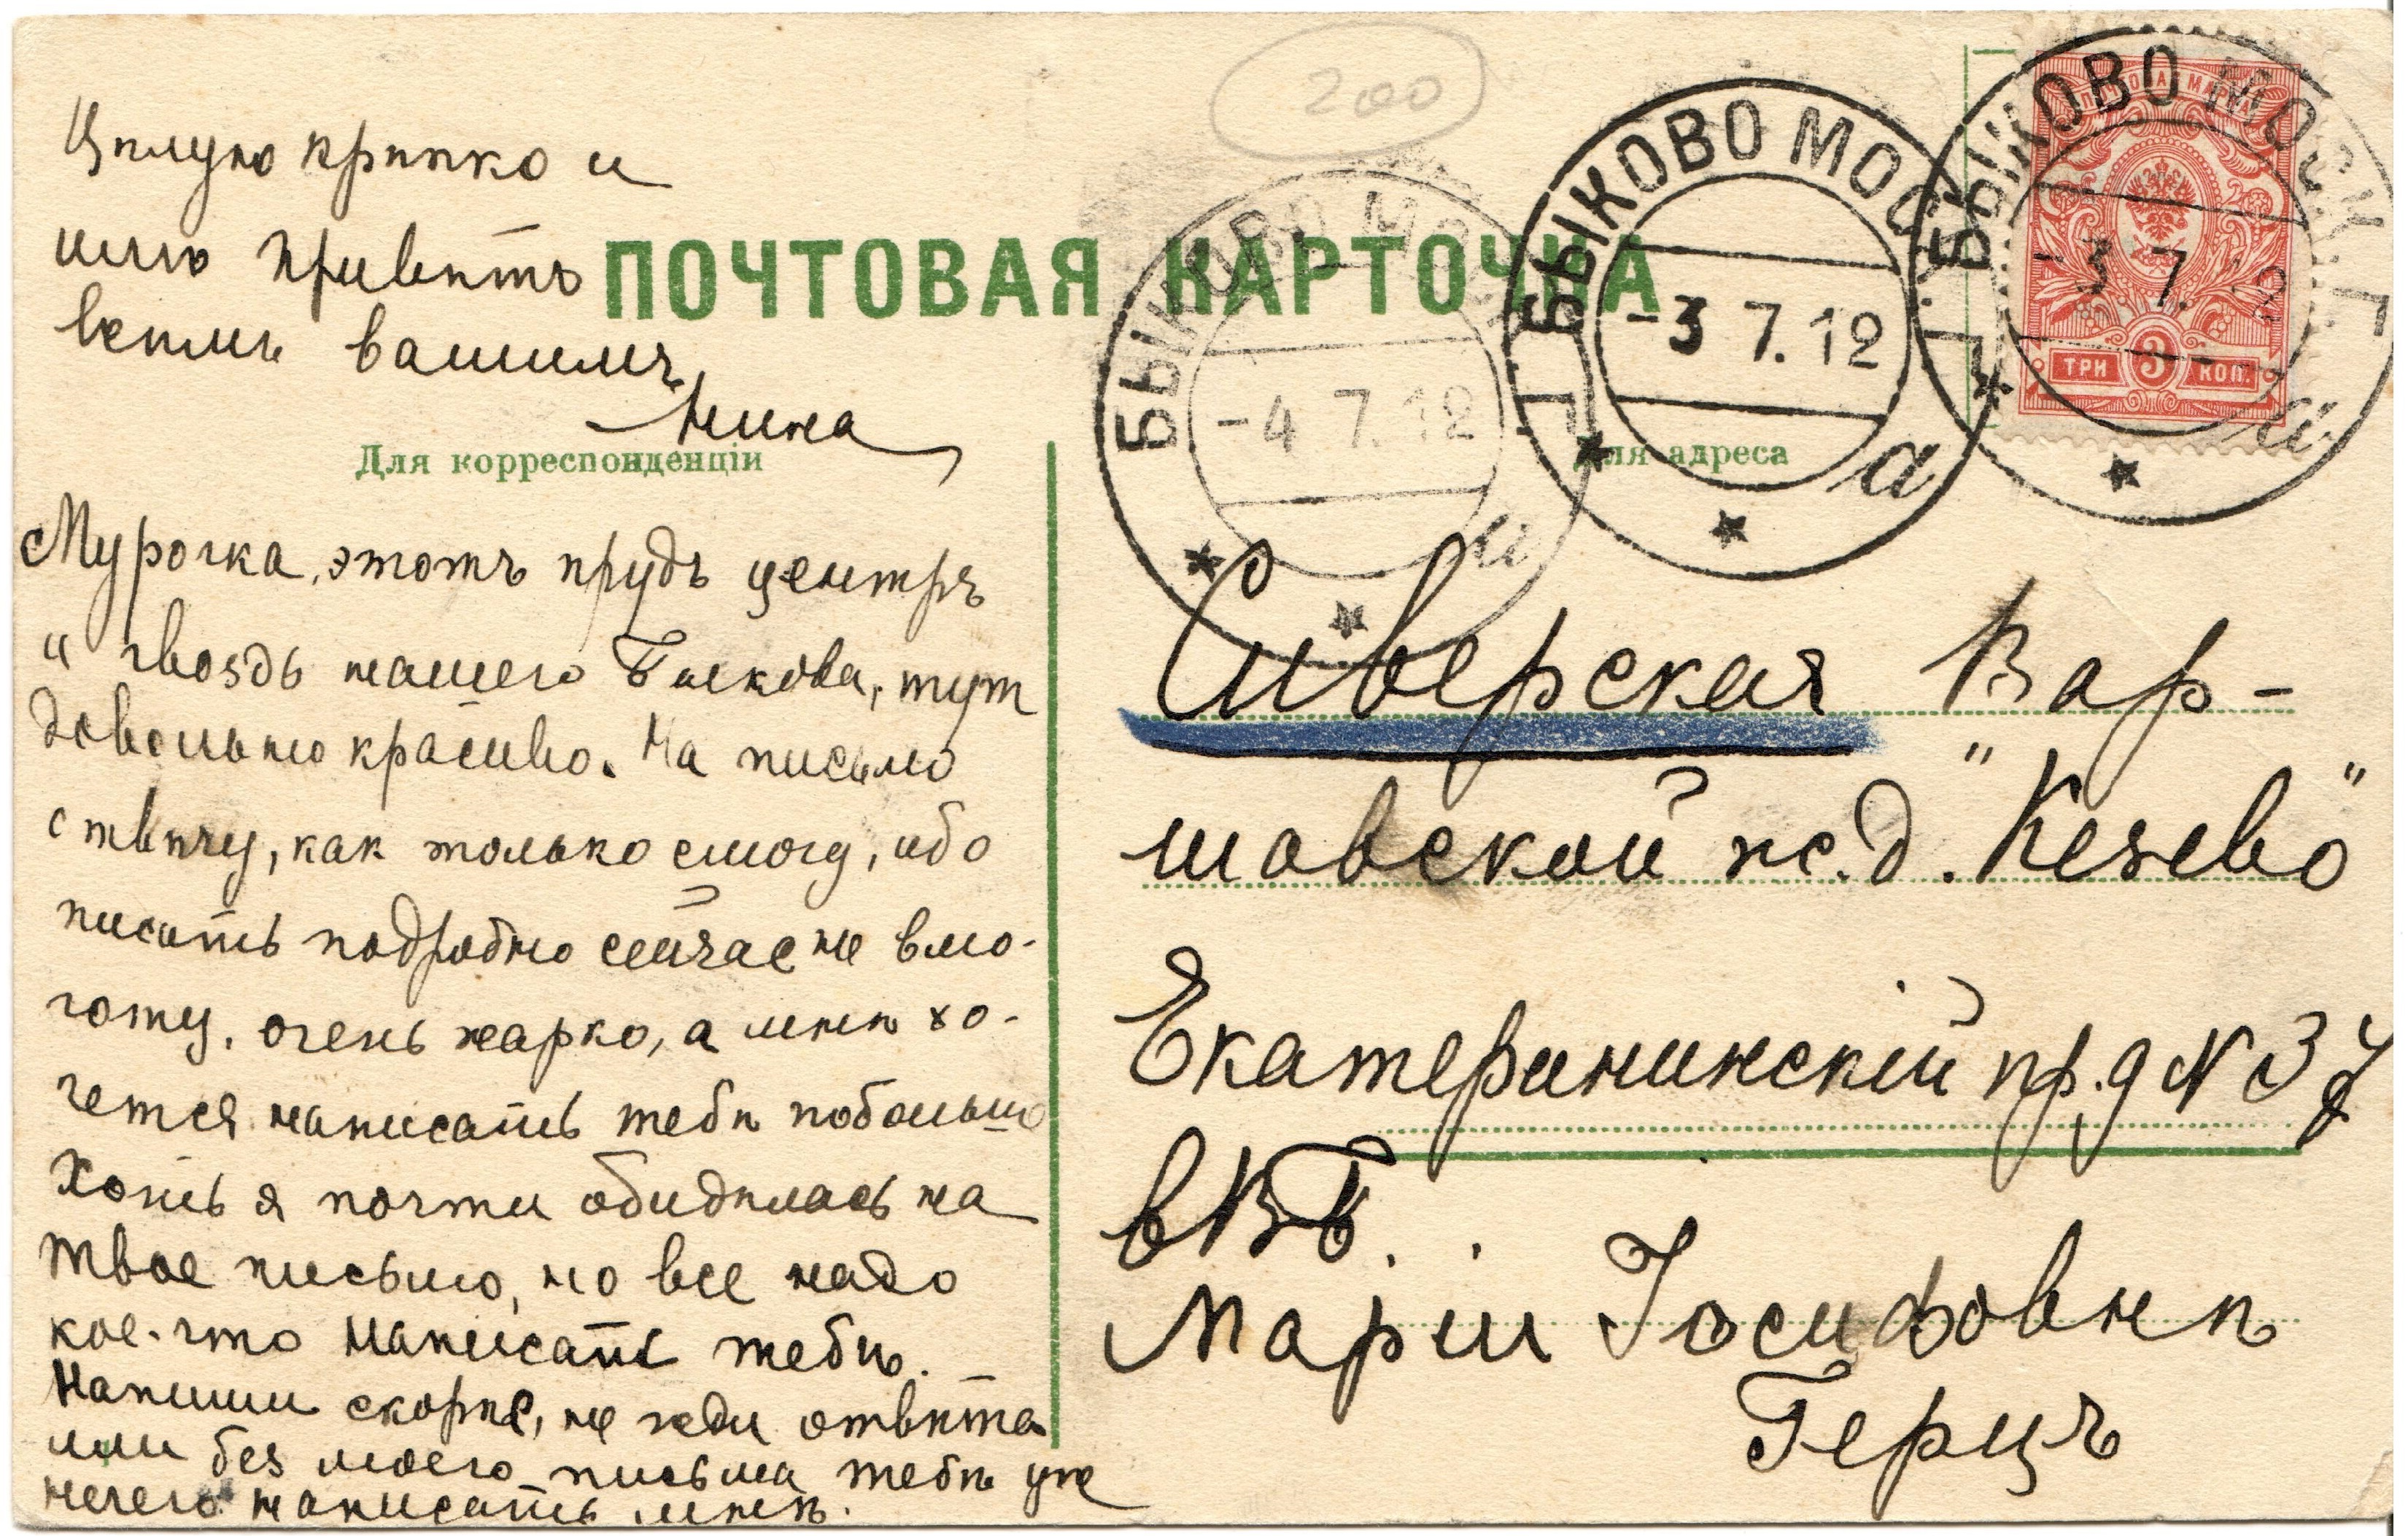 200
Цѣлую крѣпко и
шлю привѣтъ
всѣмъ вашимъ
Нина
ПОЧТОВАЯ КАРТОЧКА
Для корреспонденціи
Мурочка, этотъ прудъ центръ
и гвоздь нашего Быкова, тут
довольно красиво. На письмо
отвѣчу, как только смогу, ибо
писать подробно сейчас не вмо-
готу. очень жарко, а мнѣ хо-
чется написать тебѣ побольше
Хоть я почти обидѣлась на
твое письмо, но все надо
кое-что написать тебѣ.
Напиши скорѣе, не жди отвѣта
или без моего письма тебѣ уж
нечего написать мнѣ.
БЫКОВО МОСК. Г.
-4 7.12
а
БЫКОВО МОСК. Г.
-3 7.12
а
БЫКОВО МОСК. Г.
-3 7.12
а
ПОЧТОВАЯ МАРКА
ТРИ 3 КОП.
Для адреса
Сиверская Вар-
шавской ж.д. "Кезево"
Екатерининскій пр. д N 37
вКБ.
Маріи Іосифовнѣ
Герцъ